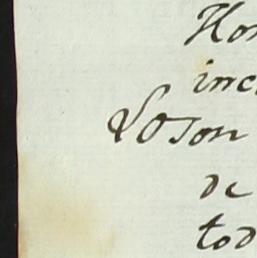 Hon
inc
Loson
de
tod